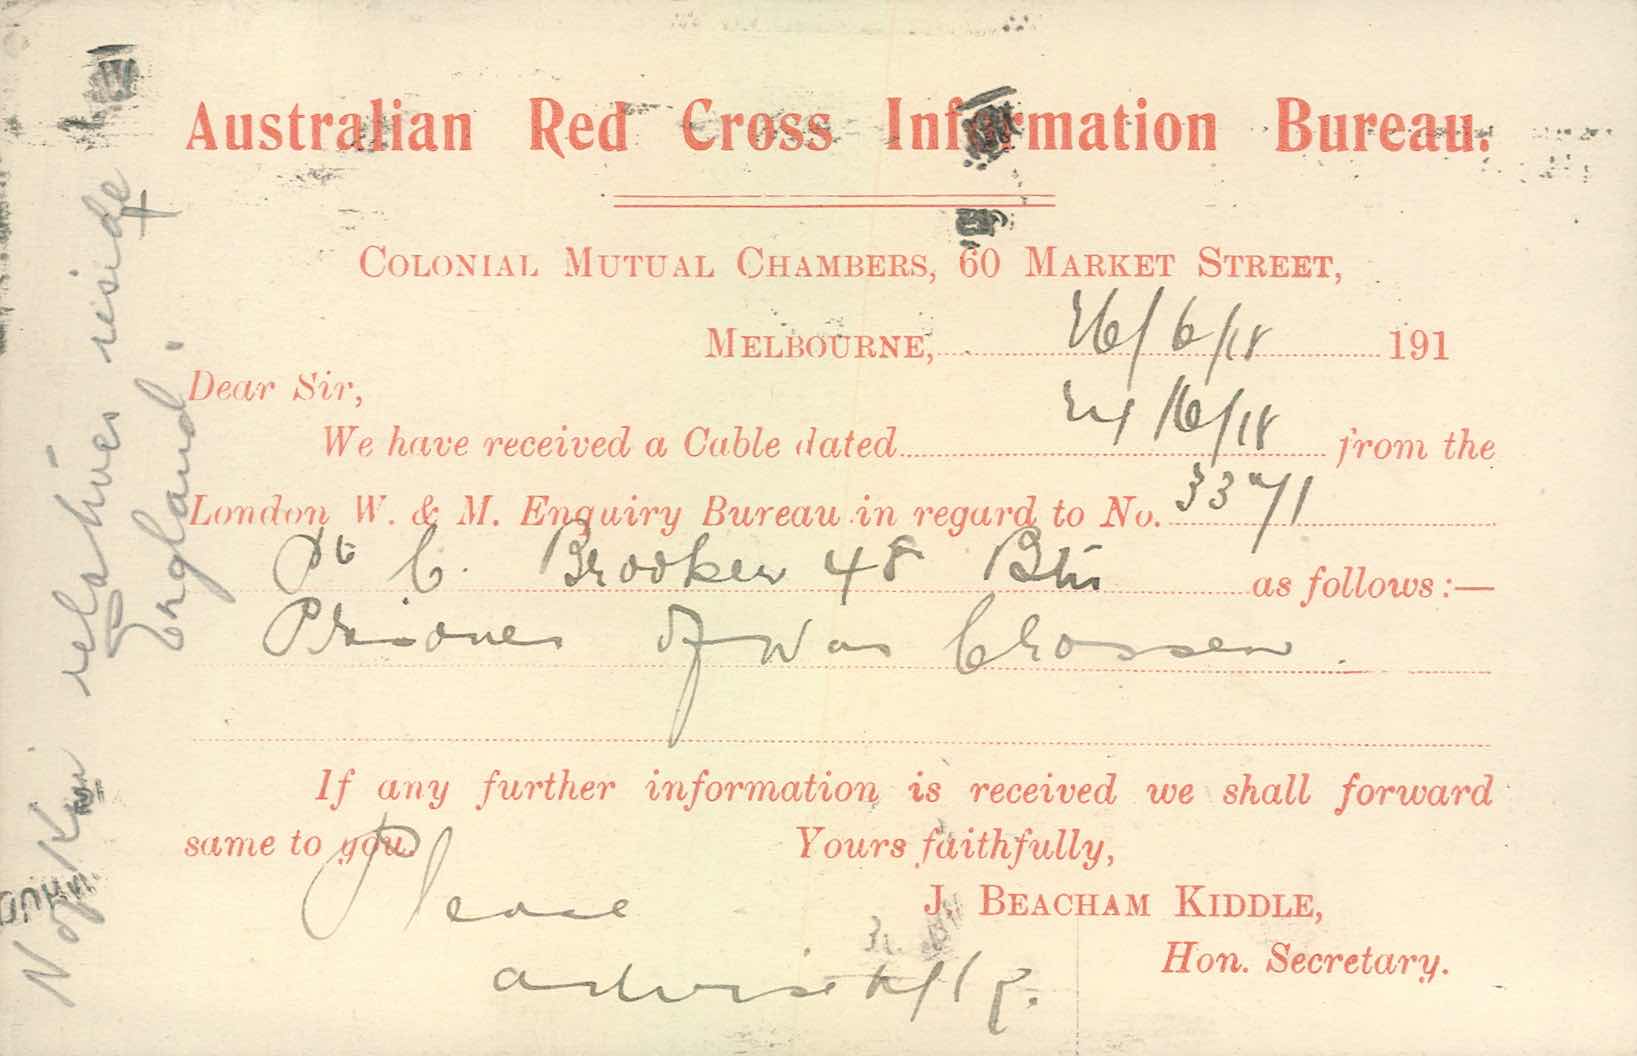 Australian Red Cross Information Bureau.
COLONIAL MUTUAL CHAMBERS, 60 MARKET STREET,
MELBOURNE, 26/6/18 191
Dear Sir,
We have received a Cable dated 24/6/18 from the
London W. & M. Enquiry Bureau in regard to No. 3371
Pte C. Brooker 48 Btn as follows:—
Prisoner of War Crossen.
If any further information is received we shall forward
same to you. Yours faithfully,
Please
J. BEACHAM KIDDLE,
advise
Hon. Secretary.
N of Kin relatives reside
England